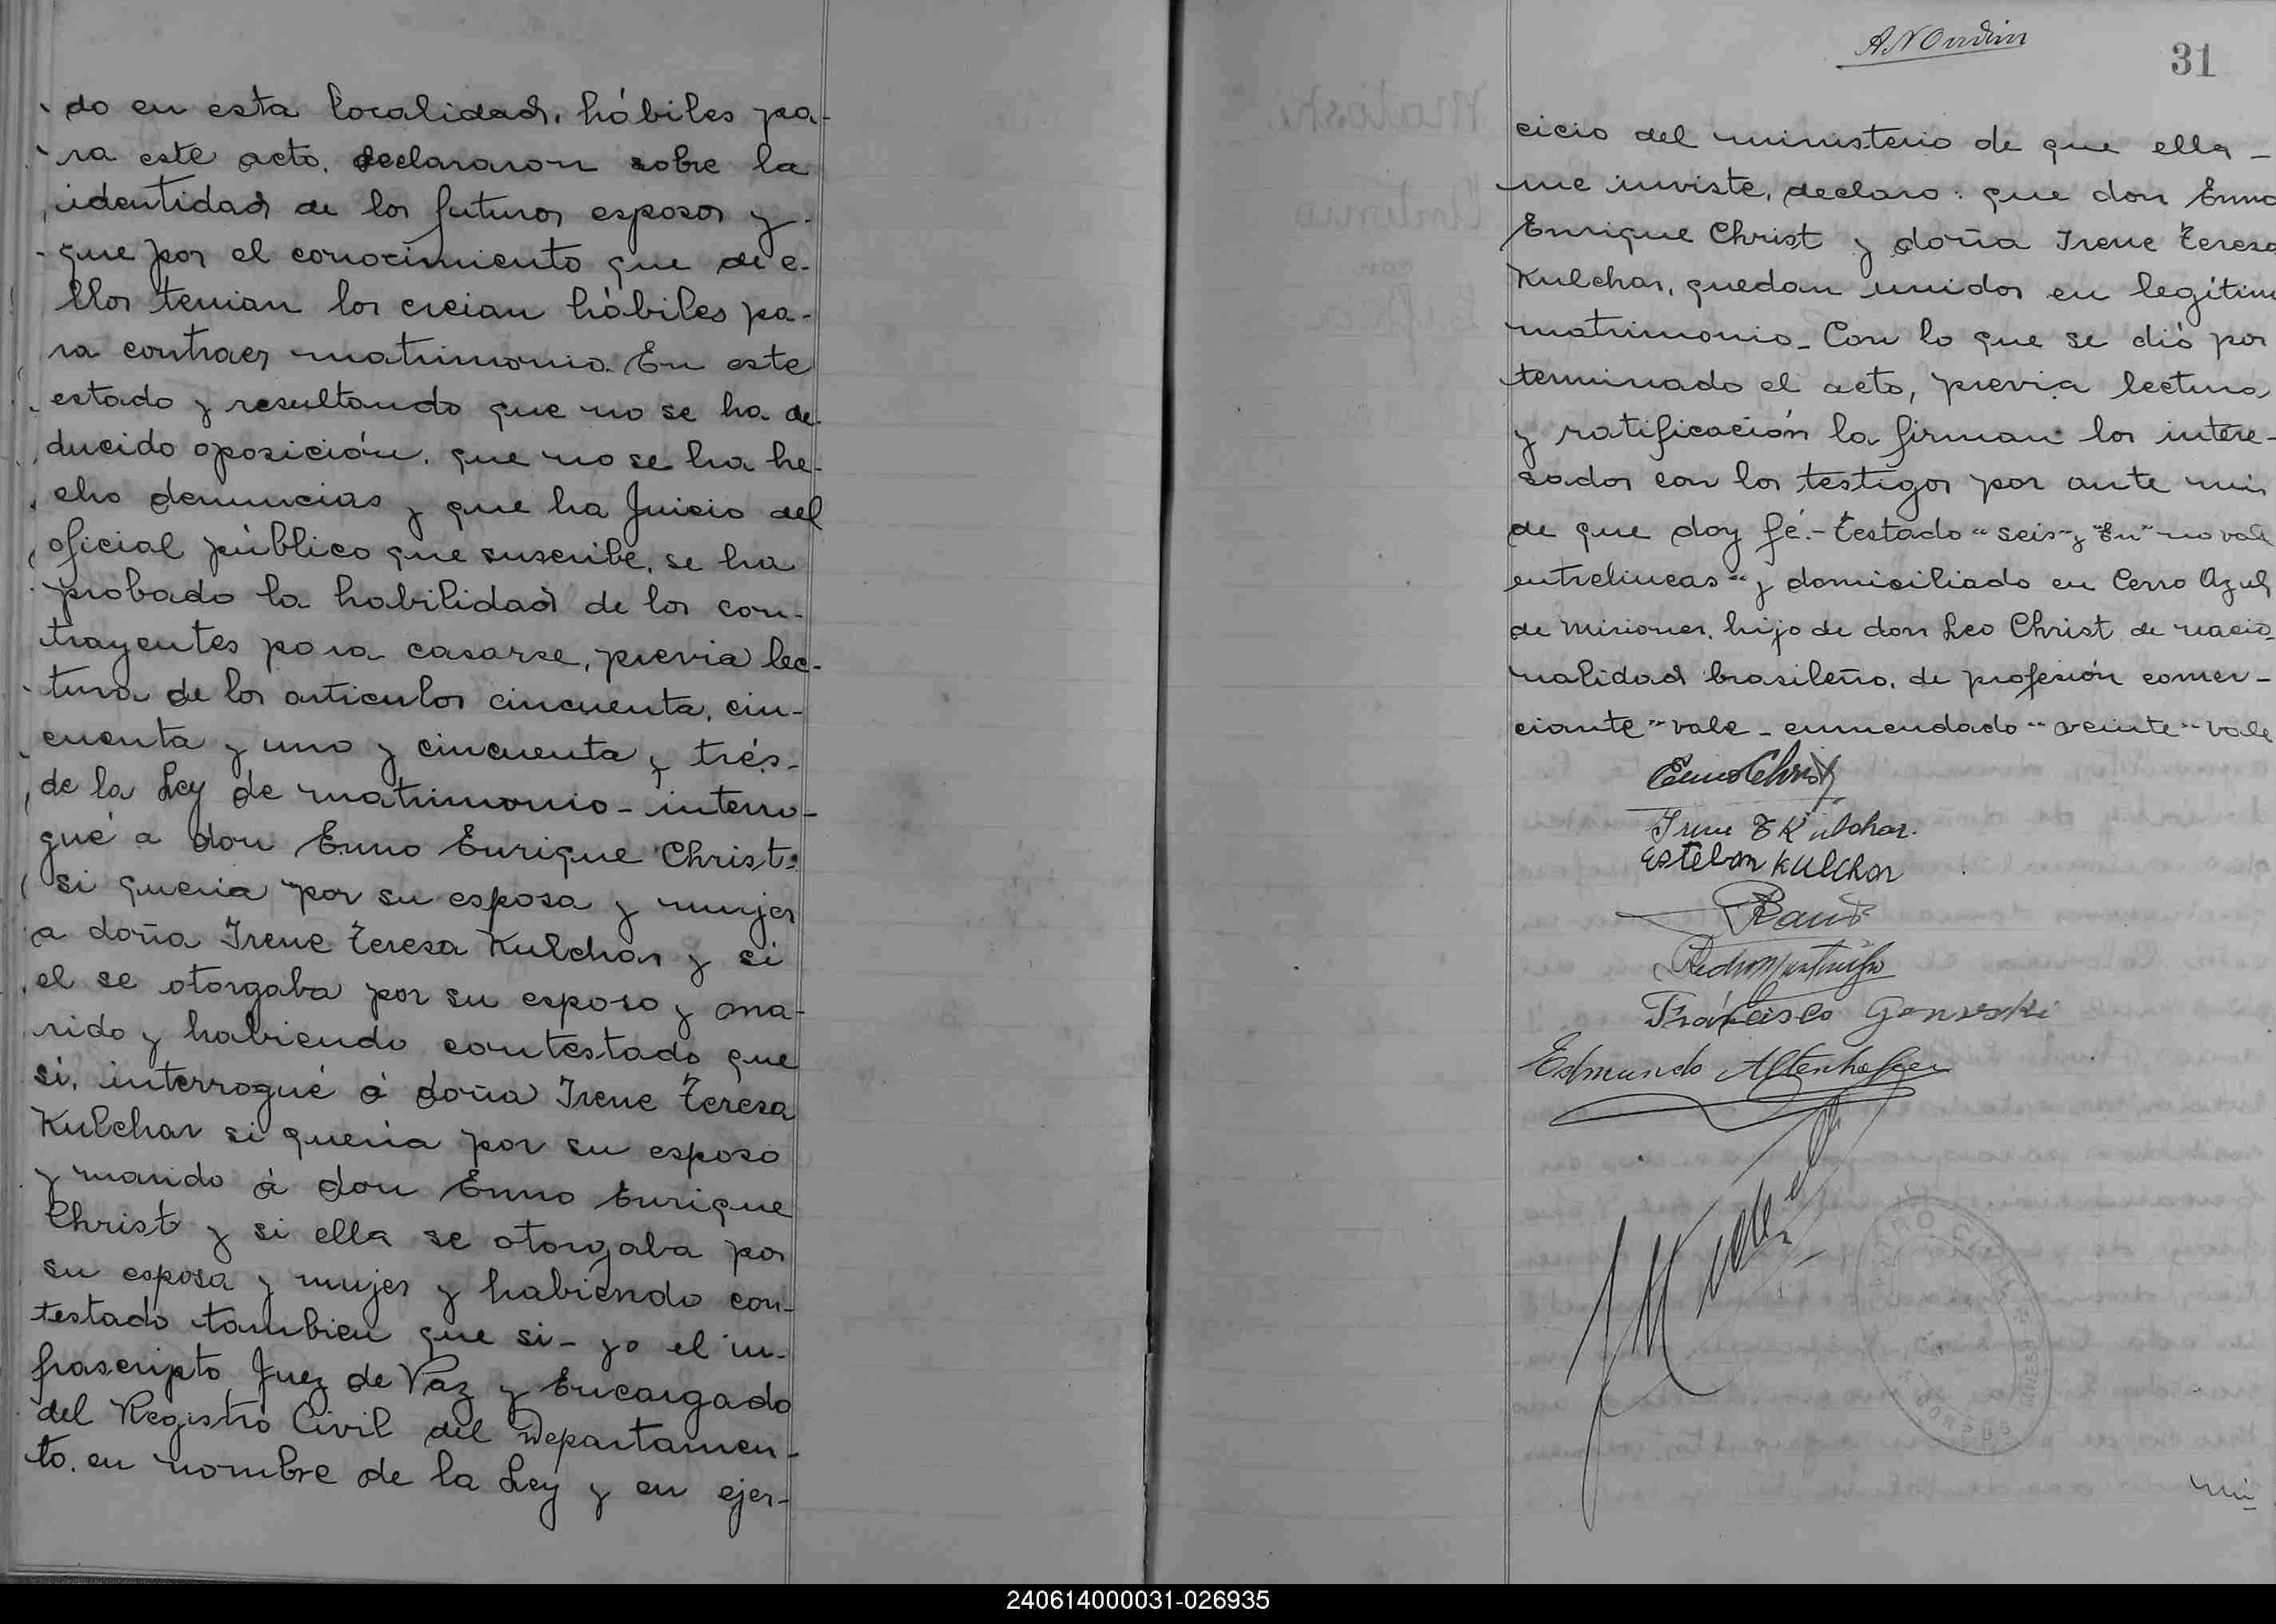 do en esta localidad, hábiles pa-
ra este acto. declararon sobre la
identidad de los futuros esposos y
que por el conocimiento que de e-
llos tenian los creian hábiles pa-
ra contraer matrimonio. En este
estado y resultando que no se ha de-
ducido oposición, que no se ha he-
cho denuncias y que ha Juicio del
oficial público que suscribe, se ha
probado la habilidad de los con-
trayentes para casarse, previa lec-
tura de los articulos cincuenta, cin-
cuenta y uno y cincuenta y trés-
de la Ley de matrimonio - interro-
gué a don Enno Enrique Christ:
si queria por su esposa y mujer
a doña Irene Teresa Kulchar y si
el se otorgaba por su esposo y ma-
rido y habiendo contestado que
si, interrogué á doña Irene Teresa
Kulchar si queria por su esposo
y marido á don Enno Enrique
Christ y si ella se otorgaba por
su esposa y mujer y habiendo con-
testado tambien que si - yo el in-
frascripto Juez de Paz y Encargado
del Registro Civil del Departamen-
to. en nombre de la Ley y en ejer-
31
cicio del ministerio de que ella -
me inviste, declaro: que don Enno
Enrique Christ y doña Irene Teresa
Kulchar, quedan unidos en legitim
matrimonio - Con lo que se dió por
terminado el acto, previa lectura
y ratificación la firman los intere-
sados con los testigos por ante mi
de que doy fé.- Testado "seis" y "En" no vale
entrelineas "y domiciliado en Cerro Azul
de Misiones, hijo de don Leo Christ de nacio-
nalidad brasileño, de profesión comer-
ciante" vale - enmendado "veinte" vale
Enno Christ
Irene T Kulchar.
Esteban Kulchar
Francisco
Edmundo Altenhofen
240614000031-026935